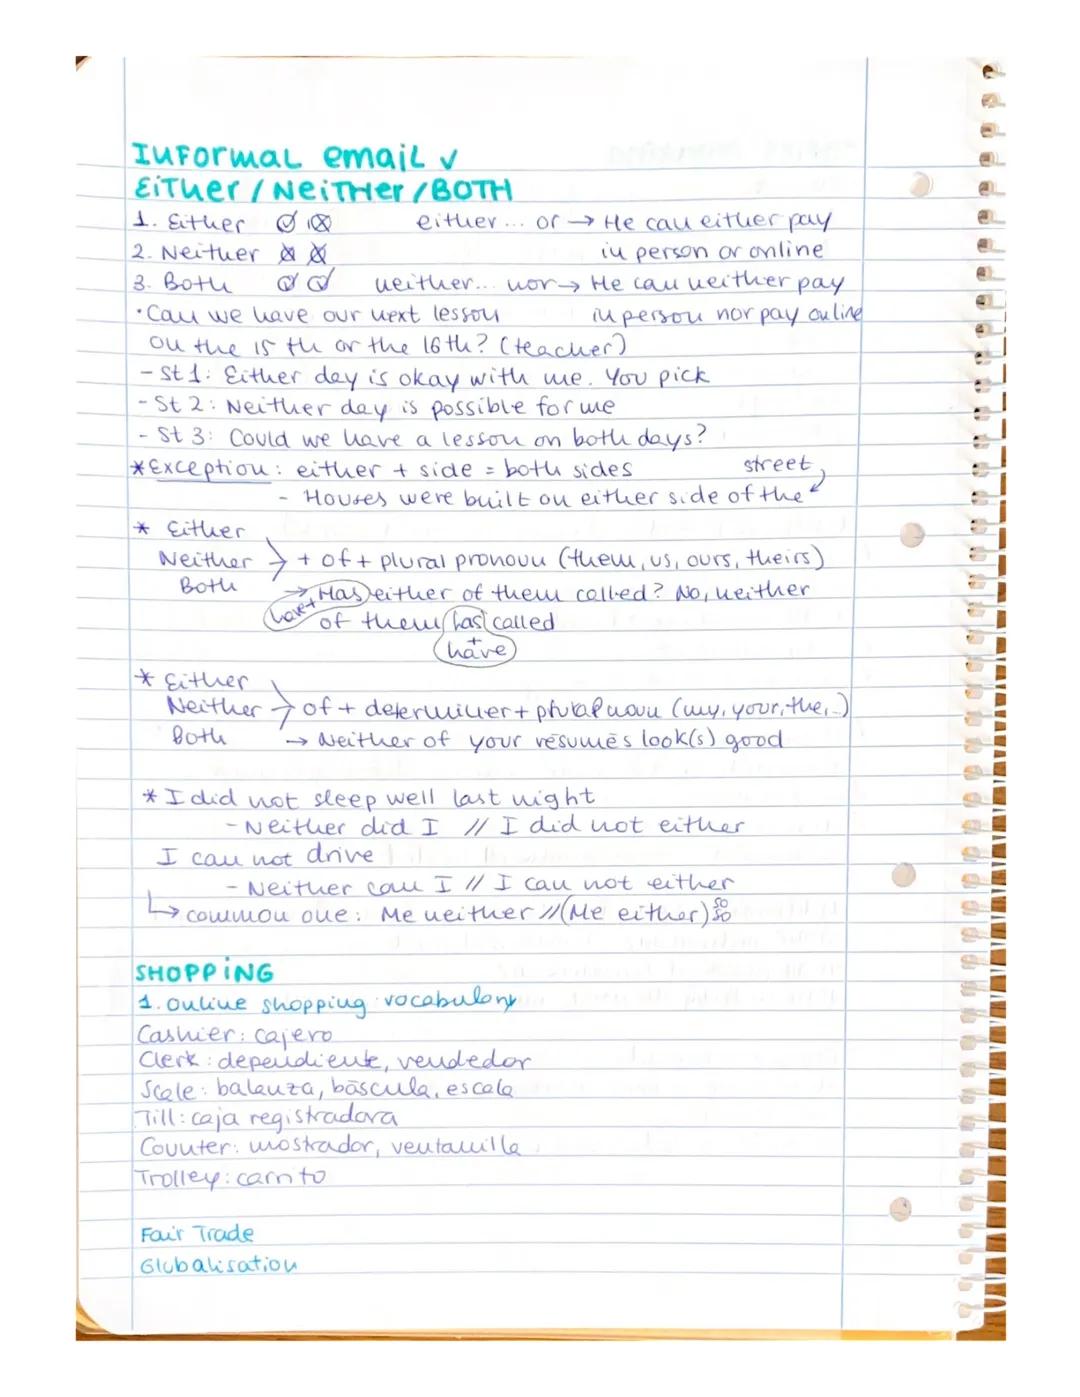 INFORMAL email ✓
EITHER / NEITHER / BOTH
1. Either ✓ x either... or → He can either pay
2. Neither x x in person or online
3. Both ✓ ✓ neither... nor → He can neither pay
· Can we have our next lesson in person nor pay online
on the 15 th or the 16th? (teacher)
- St 1: Either day is okay with me. You pick
- St 2: Neither day is possible for me
- St 3: Could we have a lesson on both days?
* Exception: either + side = both sides street
- Houses were built on either side of the
* Either
Neither + of + plural pronoun (them, us, ours, theirs)
Both → Has either of them called? No, neither
have+ of them has called
+
have
* Either
Neither of + determiner + plural noun (my, your, the,..)
Both → Neither of your résumés look(s) good
* I did not sleep well last night
- Neither did I // I did not either
I can not drive
- Neither can I // I can not either
↳ common one: Me neither // (Me either) so so
SHOPPING
1. Online shopping vocabulary
Cashier: cajero
Clerk: dependiente, vendedor
Scale: balanza, báscula, escala
Till: caja registradora
Counter: mostrador, ventanilla
Trolley: carrito
Fair Trade
Globalisation